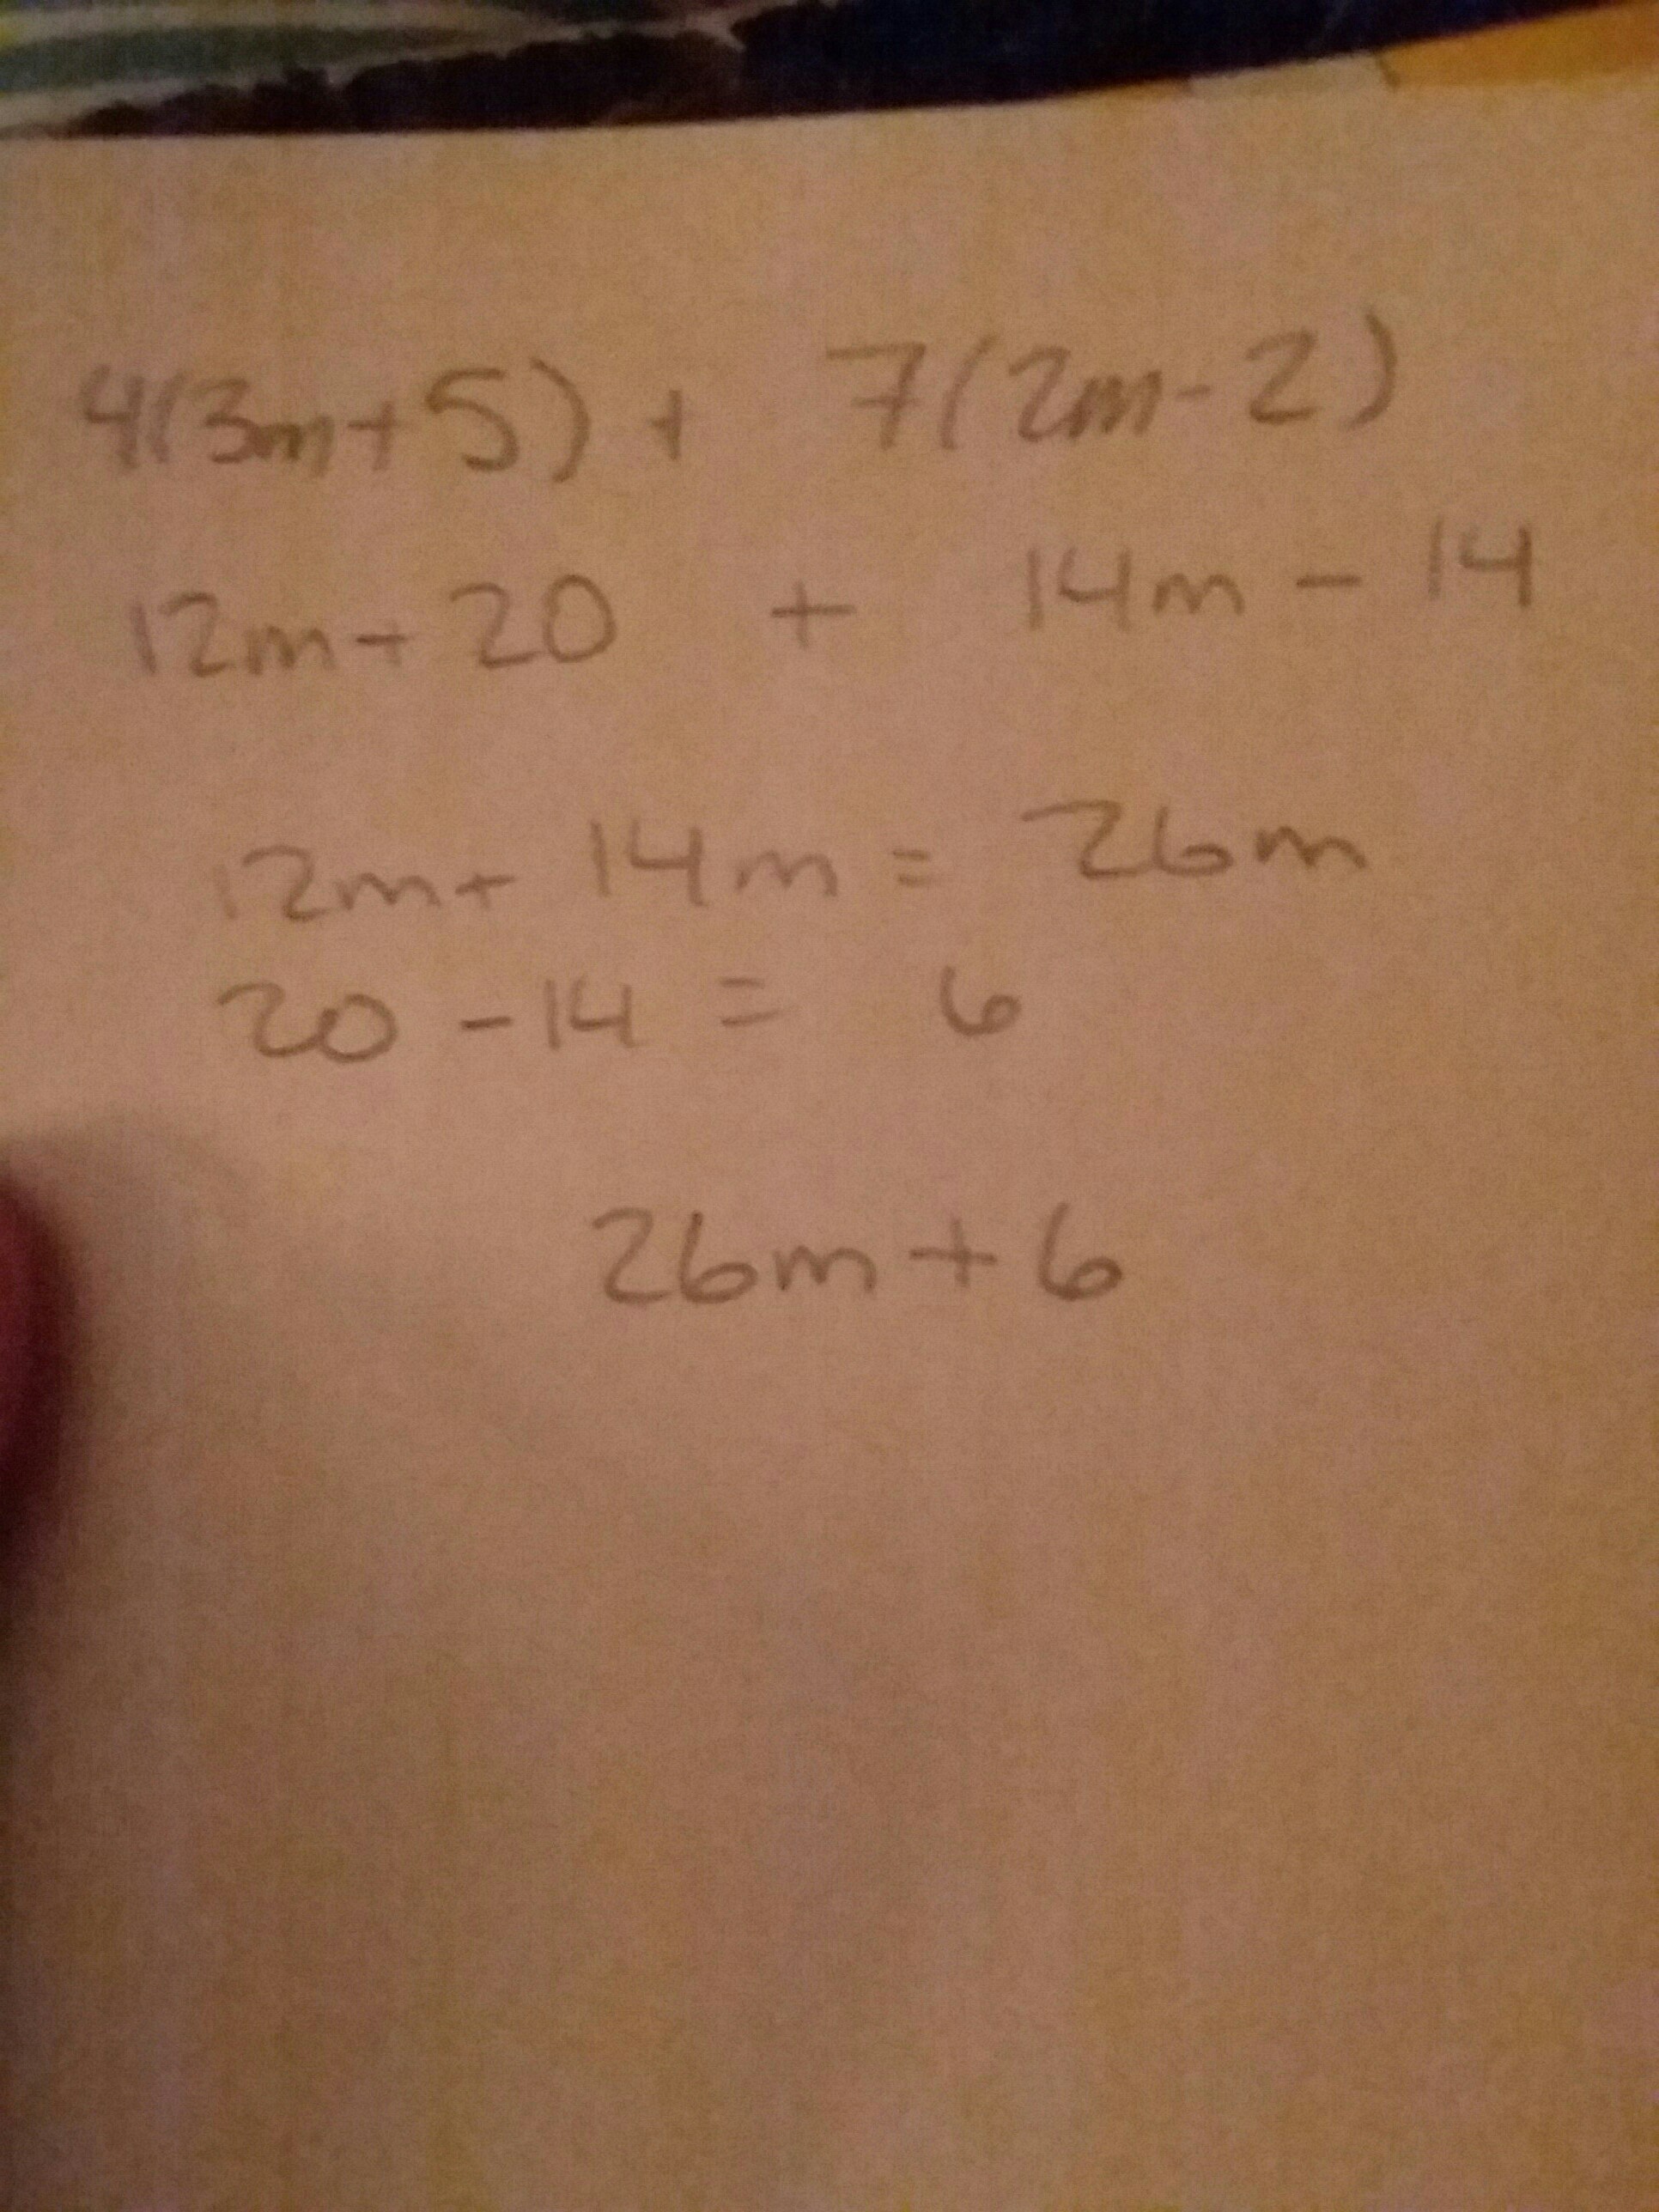 4(3m+5) + 7(2m-2)
12m+20 + 14m - 14
12m+ 14m = 26m
20 - 14 = 6
26m + 6